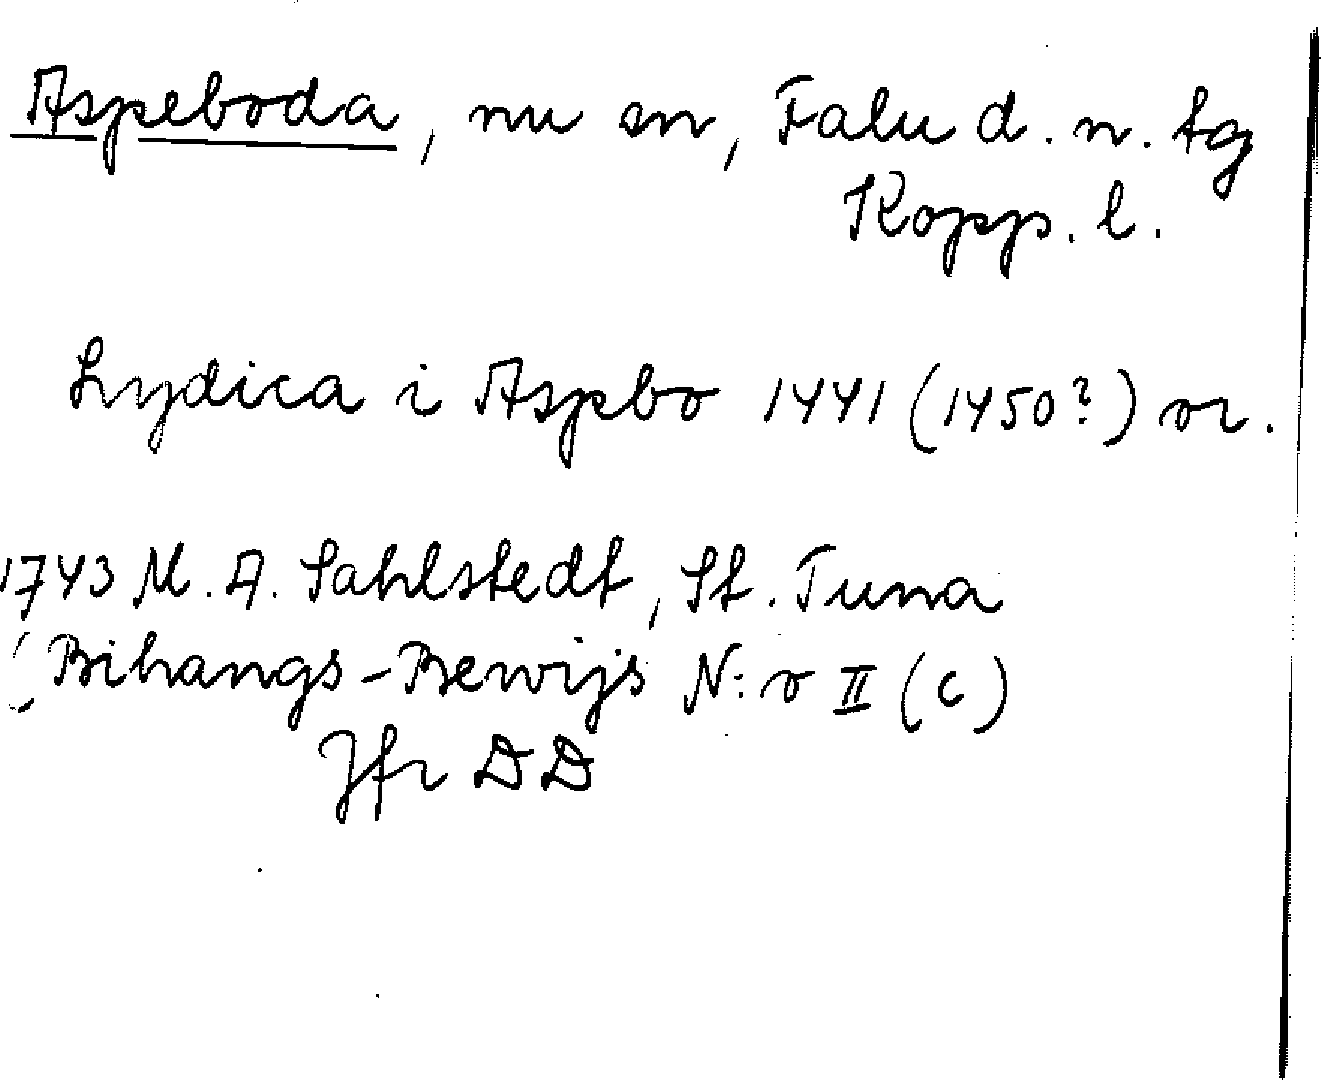 Aspeboda, nu sn, Falu d. n. tg
Kopp. l.
Lydica i Aspbo 1441 (1450?) or.
1743 M. A. Sahlstedt, St. Tuna
Bihangs-Bewijs N:o II (c)
Jfr DD